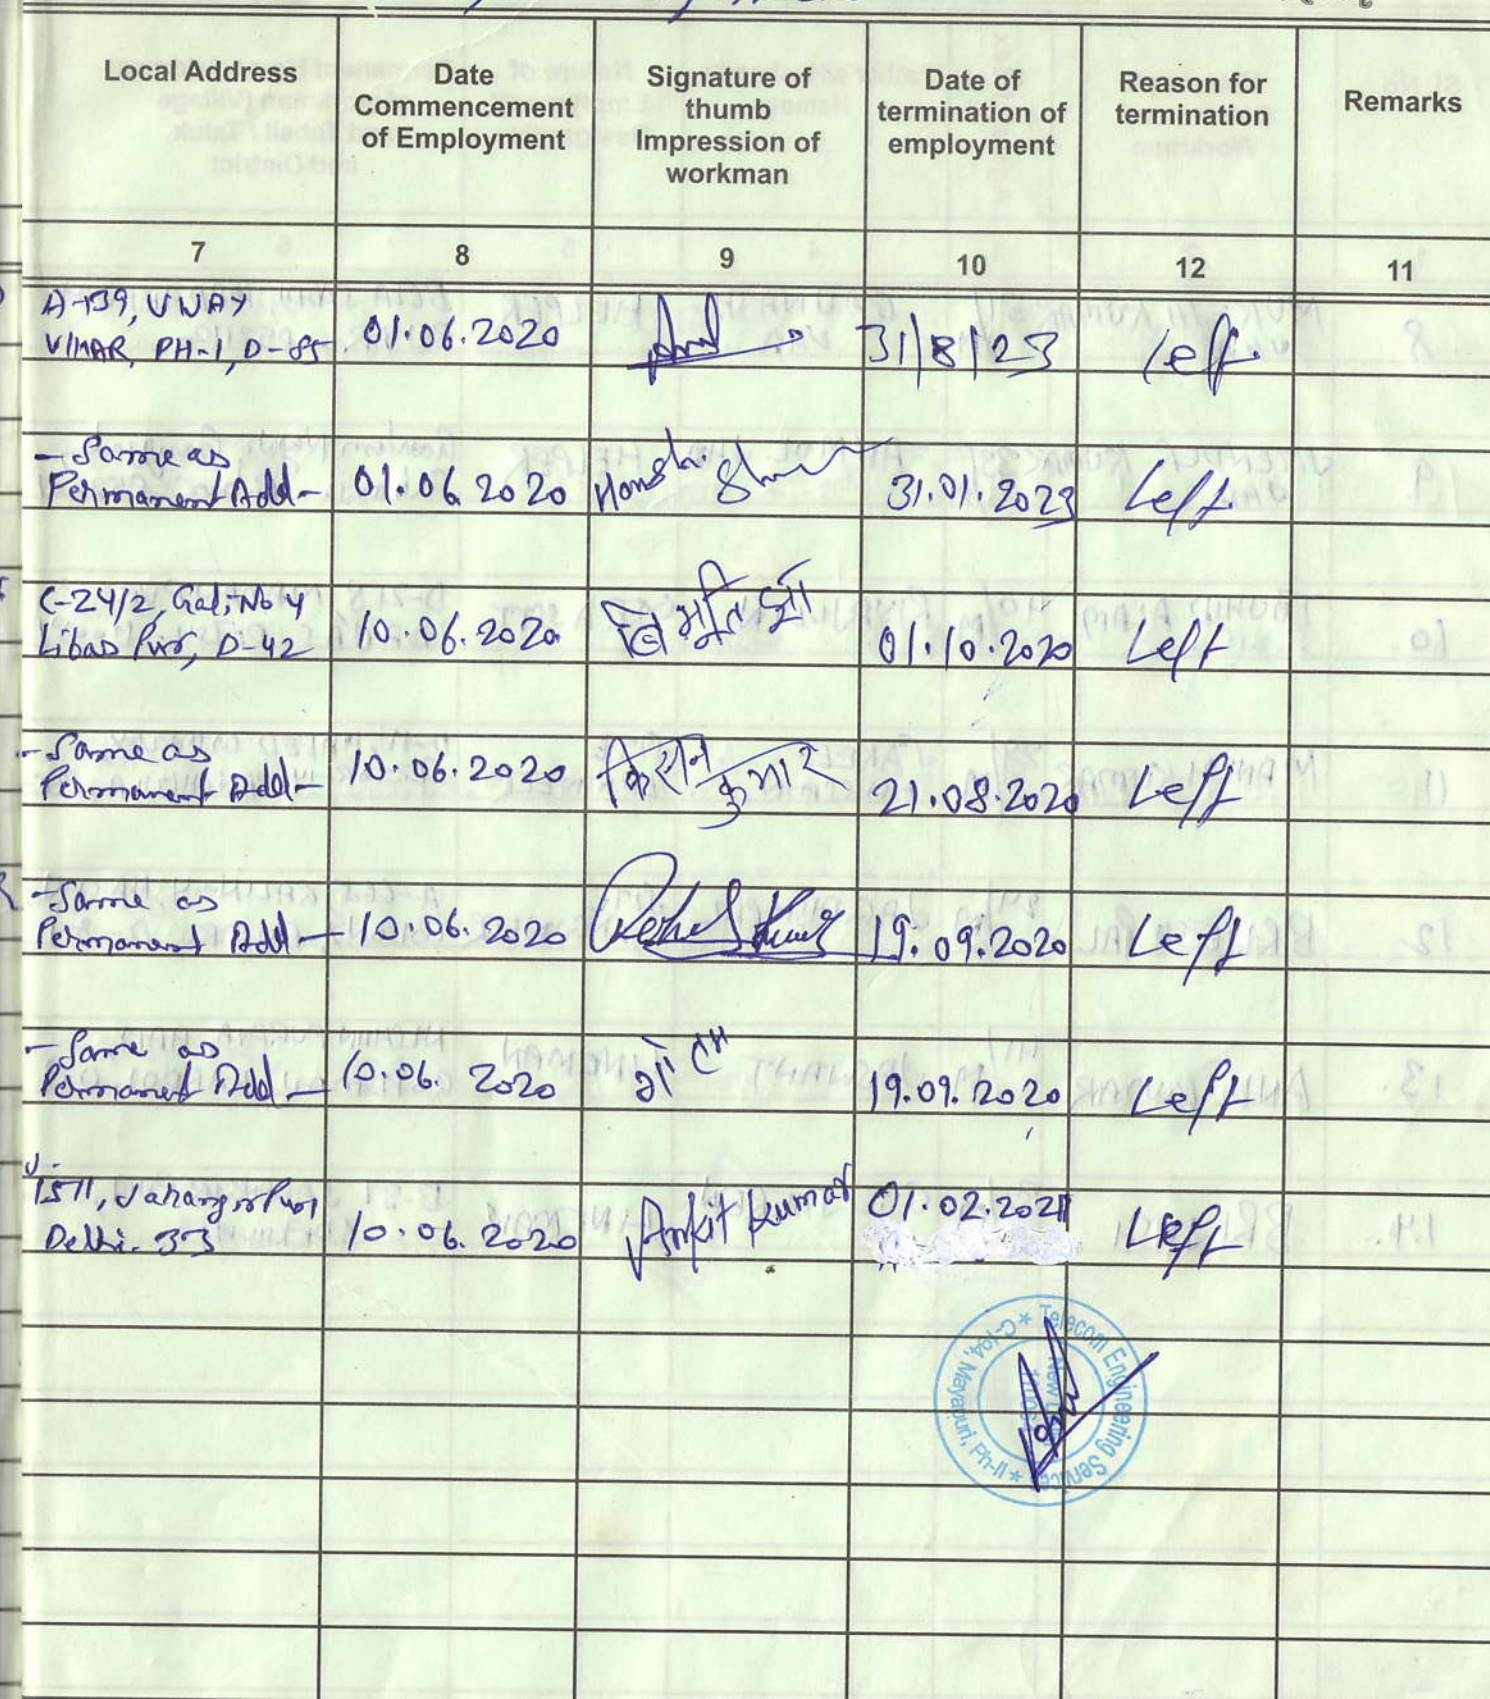 Local Address
Date
Commencement
of Employment
Signature of
thumb
Impression of
workman
Date of
termination of
employment
Reason for
termination
Remarks
7
8
9
10
12
11
A-139, VIJAY
VIHAR, PH-1, D-85
01.06.2020
31/8/23
Left
- Same as
Permanent Add -
01.06.2020
31.01.2023
Left
C-24/2, Gali No 4
Libas Pur, D-42
10.06.2020
विभूति झा
01.10.2020
Left
- Same as
Permanent Add -
10.06.2020
किशन
कुमार
21.08.2020
Left
- Same as
Permanent Add -
10.06.2020
19.09.2020
Left
- Same as
Permanent Add -
10.06.2020
19.09.2020
Left
Jahangir Puri
Delhi-33
10.06.2020
Ankit Kumar
01.02.2021
Left
Telecom Engineering Service
C-194, Mayapuri, Ph-II